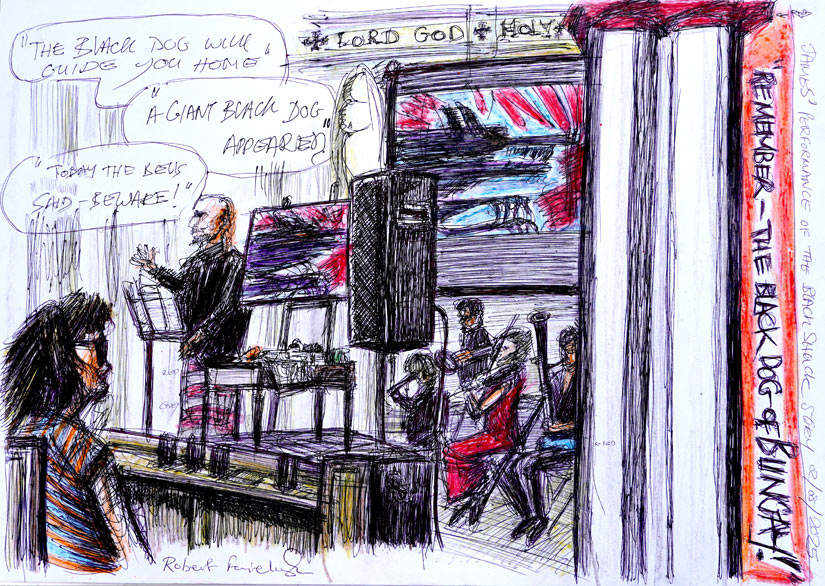 "THE BLACK DOG WILL
GUIDE YOU HOME"
"A GIANT BLACK DOG
APPEARED"
"TODAY THE BELLS
SAID - BEWARE!"
✠ LORD GOD ✠ HOLY ✠
"REMEMBER - THE BLACK DOG OF BUNGAY!"
JAMES' PERFORMANCE OF THE BLACK SHUCK STORY 02/08/2025
RED
Robert